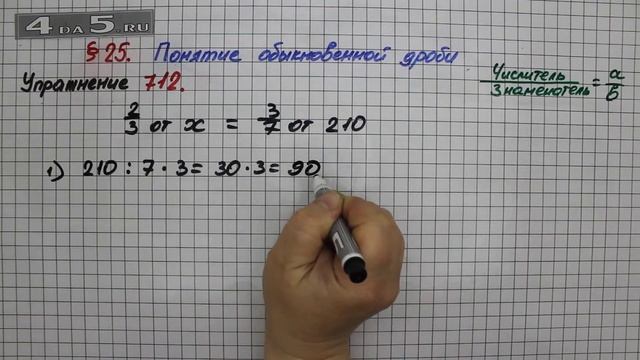 4DA5.RU
§ 25. Понятие обыкновенной дроби
Упражнение 712.
Числитель/Знаменатель = a/б
2/3 от x = 3/7 от 210
1) 210 : 7 · 3 = 30 · 3 = 90